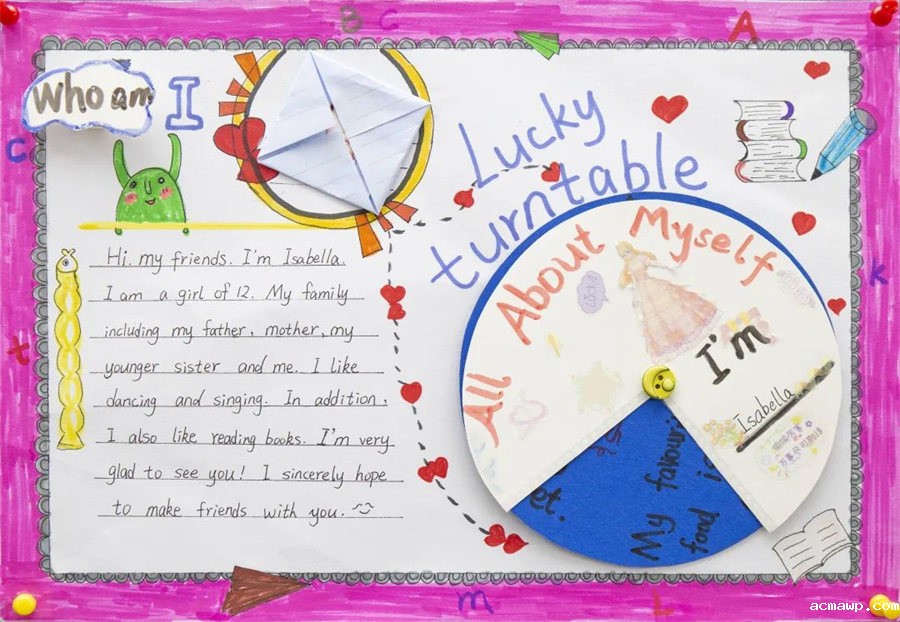 B C
A
Who am I
C
Hi. my friends. I'm Isabella.
I am a girl of 12. My family
including my father, mother, my
younger sister and me. I like
dancing and singing. In addition,
I also like reading books. I'm very
glad to see you! I sincerely hope
to make friends with you.
t
Lucky
turntable
All About Myself
Lucky
I'm
Isabella
et.
My favouri
food is
k
m
L
acmawp.com